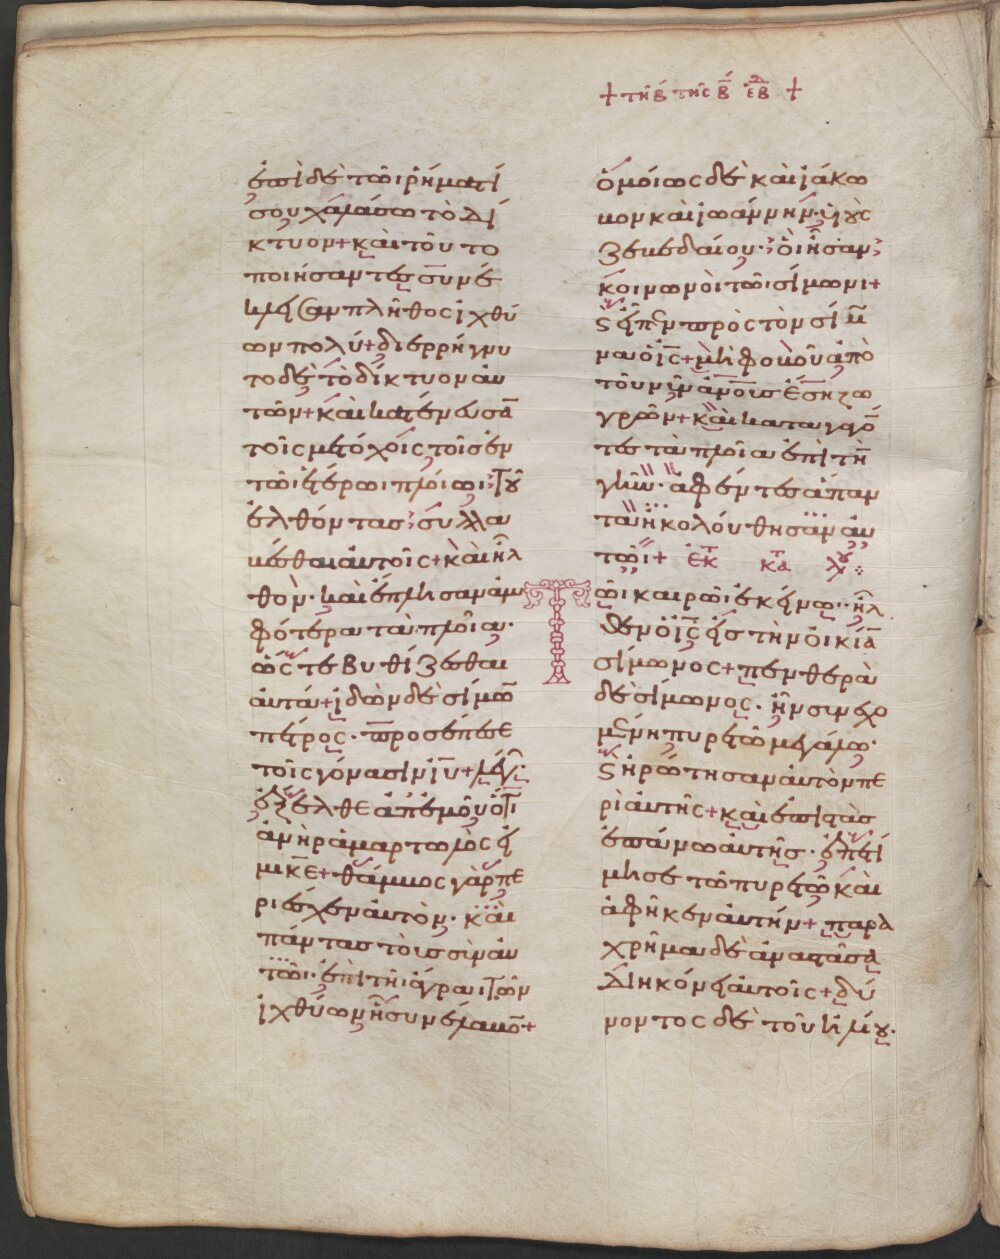 + τῆ β τῆς β̄ ἑβδ +
ἐπὶ δὲ τῶι ῥήματί
σου χαλάσω τὸ δί
κτυον + καὶ τοῦτο
ποιήσαντες συνέ
κλεισαν πλῆθος ἰχθύ
ων πολύ + διερρήγνυ
το δὲ τὸ δίκτυον αὐ
τῶν + καὶ κατένευσᾱ
τοῖς μετόχοις τοῖς ἐν
τῶι ἑτέρωι πλοίωι · τοῦ
ἐλθόντας συλλα
βέσθαι αὐτοῖς + καὶ ἦλ
θον · καὶ ἔπλησαν ἀμ
φότερα τὰ πλοῖα ·
ὥστε βυθίζεσθαι
αὐτά + ἰδὼν δὲ σίμω̄
πέτρος · προσέπεσε
τοῖς γόνασιν ῑῡ + λέγων ·
ἔξελθε ἀπ' ἐμοῦ ὅτι
ἀνὴρ ἁμαρτωλὸς εἰ
μι κ̄ε̄ + θάμβος γὰρ πε
ριέσχεν αὐτὸν · καὶ
πάντας τοὺς σὺν αὐ
τῶι · ἐπὶ τῆι ἄγραι τῶν
ἰχθύων ἧ συνέλαβο̄ +
ὁμοίως δὲ καὶ ἰάκω
βον καὶ ἰωάννην · υἱοὺς
ζεβεδαίου · οἳ ἦσαν
κοινωνοὶ τῶι σίμωνι +
ϛ εἶπεν πρὸς τὸν σίμω
να ὁ ῑς̄ + μὴ φοβοῦ ἀπὸ
τοῦ νῦν ἀν̄οῑς ἔσῃ ζω
γρῶν + καὶ καταγαγό
ντες τὰ πλοῖα ἐπὶ τὴν
γῆν · ἀφέντες ἅπαν
τα ἠκολούθησαν αὐ
τῶι + ἐκ τ κα τ λου :
Τῶι καιρῶι ἐκείνω · ἦλ
θεν ὁ ῑς̄ εἰς τὴν οἰκίᾱ
σίμωνος + πενθερὰ
δὲ σίμωνος · ἦν συνεχο
μένη πυρετῶ μεγάλω ·
ϛ ἠρώτησαν αὐτὸν πε
ρὶ αὐτῆς + καὶ ἐπιστὰς
ἐπάνω αὐτῆς · ἐπετί
μησε τῶ πυρετῶ καὶ
ἀφῆκεν αὐτήν + παρα
χρῆμα δὲ ἀναστᾶσα
διηκόνει αὐτοῖς + δύ
νοντος δὲ τοῦ ἡλίου ·